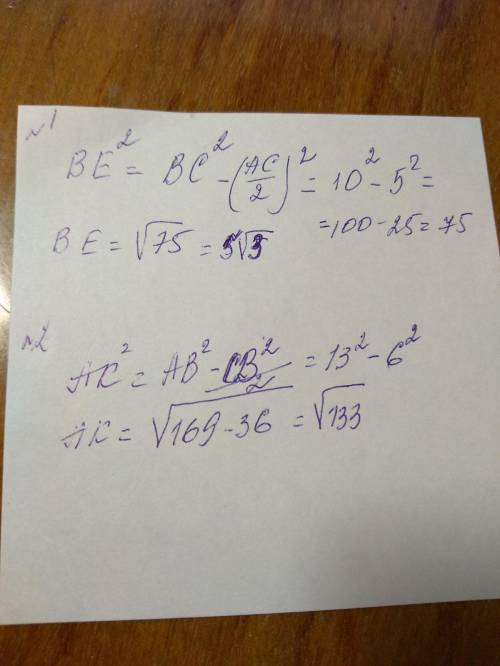 №1
BE² = BC² - (AC/2)² = 10² - 5² =
= 100 - 25 = 75
BE = √75 = 5√3
№2
AK² = AB² - CB²/2 = 13² - 6²
AK = √169 - 36 = √133